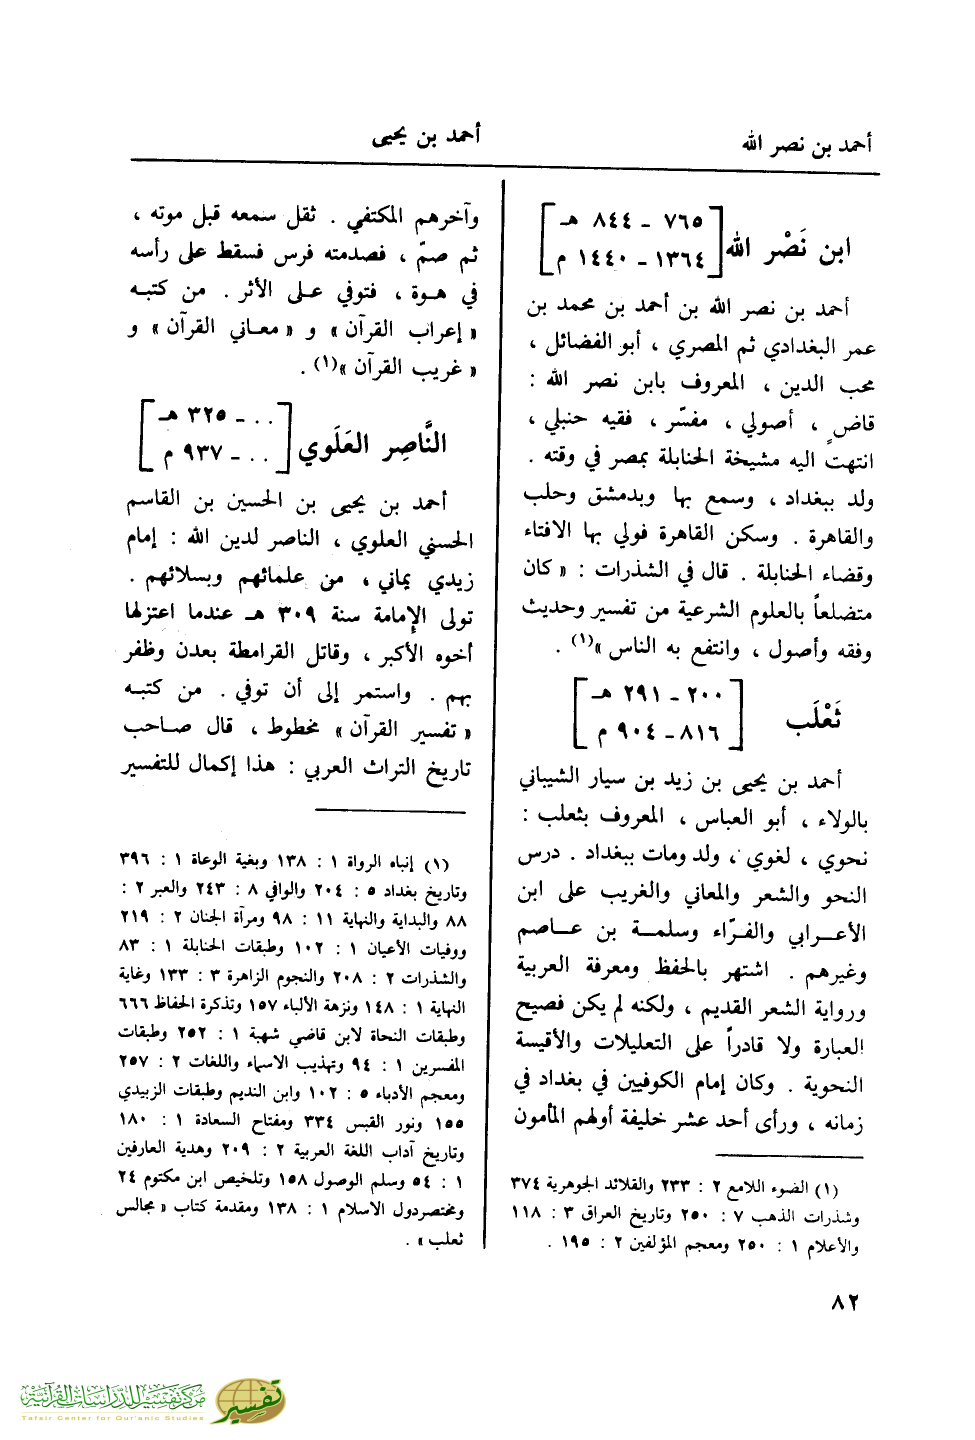 أحمد بن نصر الله
أحمد بن يحيى
ابن نَصْر الله
[ ٧٦٥ ـ ٨٤٤ هـ
١٣٦٤ ـ ١٤٤٠ م ]
أحمد بن نصر الله بن أحمد بن محمد بن
عمر البغدادي ثم المصري ، أبو الفضائل ،
محب الدين ، المعروف بابن نصر الله :
قاضٍ ، أصولي ، مفسّر ، فقيه حنبلي ،
انتهت اليه مشيخة الحنابلة بمصر في وقته .
ولد ببغداد ، وسمع بها وبدمشق وحلب
والقاهرة . وسكن القاهرة فولي بها الافتاء
وقضاء الحنابلة . قال في الشذرات : « كان
متضلعاً بالعلوم الشرعية من تفسير وحديث
وفقه وأصول ، وانتفع به الناس »(١) .
ثَعْلَب
[ ٢٠٠ ـ ٢٩١ هـ
٨١٦ ـ ٩٠٤ م ]
أحمد بن يحيى بن زيد بن سيار الشيباني
بالولاء ، أبو العباس ، المعروف بثعلب :
نحوي ، لغوي ، ولد ومات ببغداد . درس
النحو والشعر والمعاني والغريب على ابن
الأعرابي والفرّاء وسلمة بن عاصم
وغيرهم . اشتهر بالحفظ ومعرفة العربية
ورواية الشعر القديم ، ولكنه لم يكن فصيح
العبارة ولا قادراً على التعليلات والأقيسة
النحوية . وكان إمام الكوفيين في بغداد في
زمانه ، ورأى أحد عشر خليفة أولهم المأمون
(١) الضوء اللامع ٢ : ٢٣٣ والقلائد الجوهرية ٣٧٤
وشذرات الذهب ٧ : ٢٥٠ وتاريخ العراق ٣ : ١١٨
والأعلام ١ : ٢٥٠ ومعجم المؤلفين ٢ : ١٩٥ .
وآخرهم المكتفي . ثقل سمعه قبل موته ،
ثم صمّ ، فصدمته فرس فسقط على رأسه
في هوة ، فتوفي على الأثر . من كتبه
« إعراب القرآن » و « معاني القرآن » و
« غريب القرآن »(١) .
النَّاصِر العَلَوي
[ . . ـ ٣٢٥ هـ
. . ـ ٩٣٧ م ]
أحمد بن يحيى بن الحسين بن القاسم
الحسني العلوي ، الناصر لدين الله : إمام
زيدي يماني ، من علمائهم وبسلائهم .
تولى الإمامة سنة ٣٠٩ هـ عندما اعتزلها
أخوه الأكبر ، وقاتل القرامطة بعدن وظفر
بهم . واستمر إلى أن توفي . من كتبه
« تفسير القرآن » مخطوط ، قال صاحب
تاريخ التراث العربي : هذا إكمال للتفسير
(١) إنباه الرواة ١ : ١٣٨ وبغية الوعاة ١ : ٣٩٦
وتاريخ بغداد ٥ : ٢٠٤ والوافي ٨ : ٢٤٣ والعبر ٢ :
٨٨ والبداية والنهاية ١١ : ٩٨ ومرآة الجنان ٢ : ٢١٩
ووفيات الأعيان ١ : ١٠٢ وطبقات الحنابلة ١ : ٨٣
والشذرات ٢ : ٢٠٨ والنجوم الزاهرة ٣ : ١٣٣ وغاية
النهاية ١ : ١٤٨ ونزهة الألباء ١٥٧ وتذكرة الحفاظ ٦٦٦
وطبقات النحاة لابن قاضي شهبة ١ : ٢٥٢ وطبقات
المفسرين ١ : ٩٤ وتهذيب الاسماء واللغات ٢ : ٢٥٧
ومعجم الأدباء ٥ : ١٠٢ وابن النديم وطبقات الزبيدي
١٥٥ ونور القبس ٣٣٤ ومفتاح السعادة ١ : ١٨٠
وتاريخ آداب اللغة العربية ٢ : ٢٠٩ وهدية العارفين
١ : ٥٤ وسلم الوصول ١٥٨ وتلخيص ابن مكتوم ٢٤
ومختصر دول الاسلام ١ : ١٣٨ ومقدمة كتاب « مجالس
ثعلب » .
٨٢
مركز تفسير للدراسات القرآنية
Tafsir Center for Qur'anic Studies
تفسير